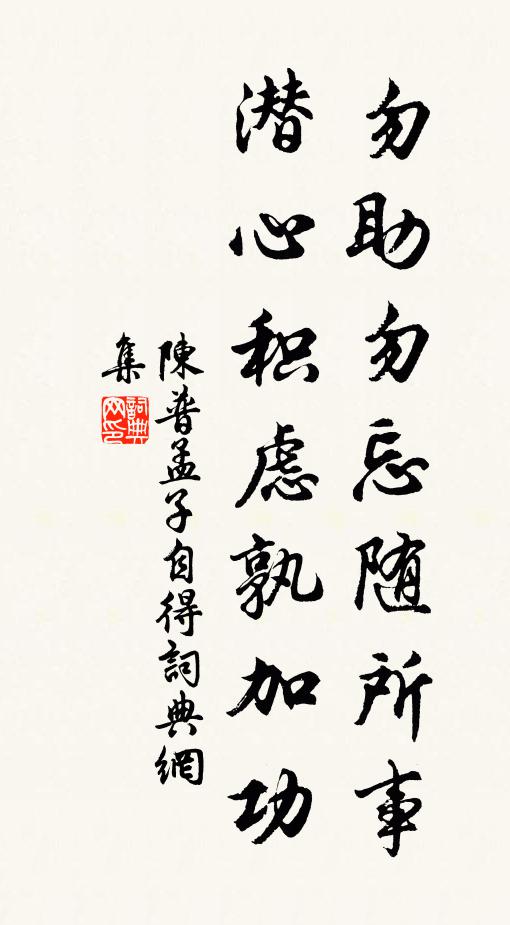 勿助勿忘随所事
潜心积虑孰加功
陳普孟子自得詞典網
集
詞典网印